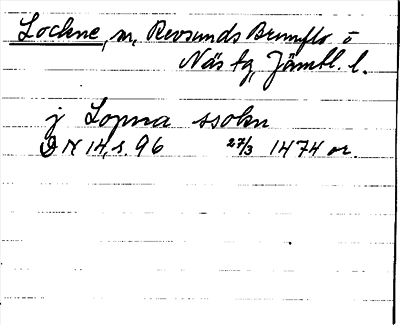 Lockne, sn, Revsunds Brunflo o
Näs tg, Jämtl. l.
j Lopna ssokn
DN 14, s. 96 27/3 1474 or.